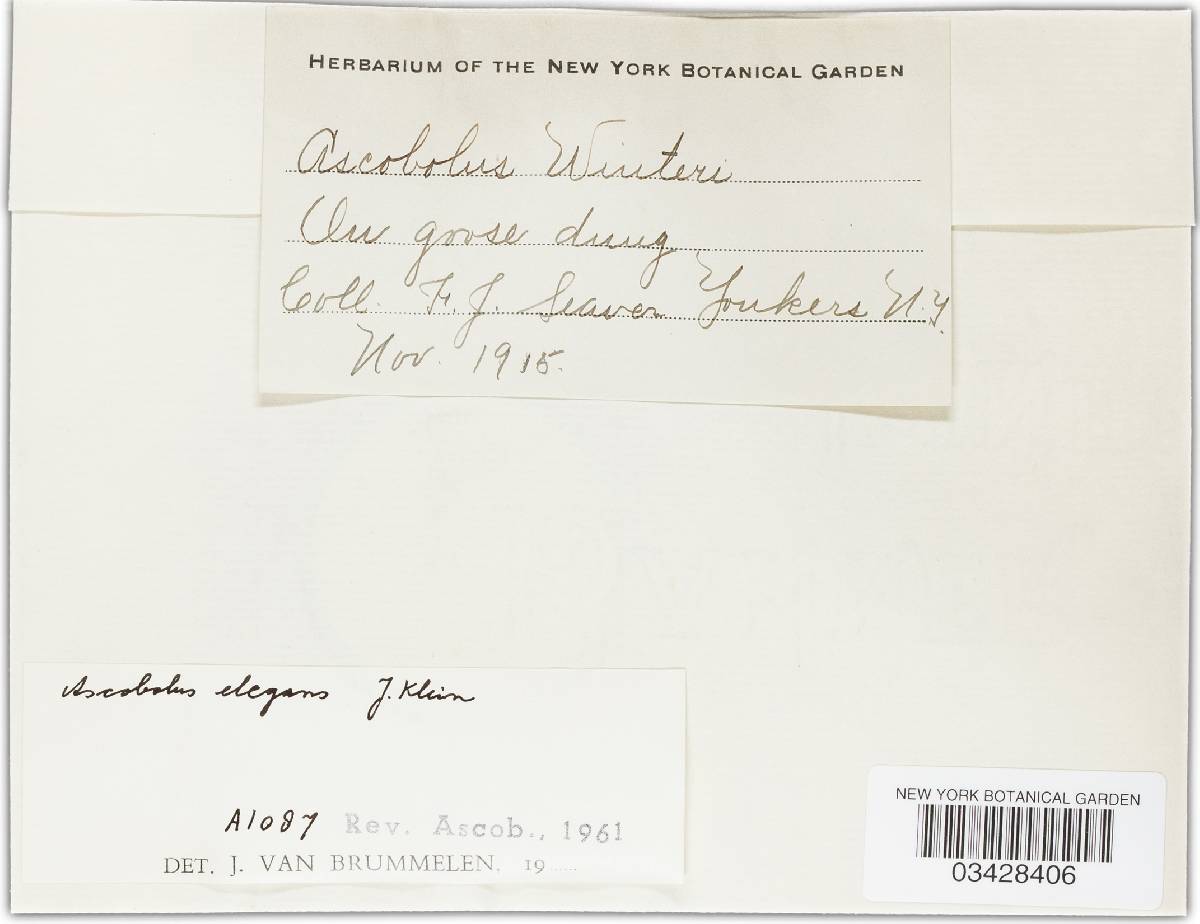 HERBARIUM OF THE NEW YORK BOTANICAL GARDEN
Ascobolus Winteri
On goose dung
Coll. F. J. Seaver Yonkers N.Y.
Nov. 1915.
Ascobolus elegans J. Klein
A1087 Rev. Ascob., 1961
DET. J. VAN BRUMMELEN, 19......
NEW YORK BOTANICAL GARDEN
03428406